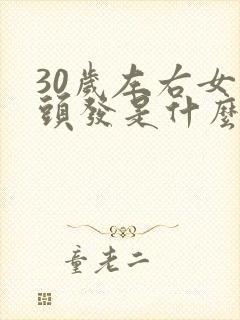 30歲左右女
頭發是什麼
童老二